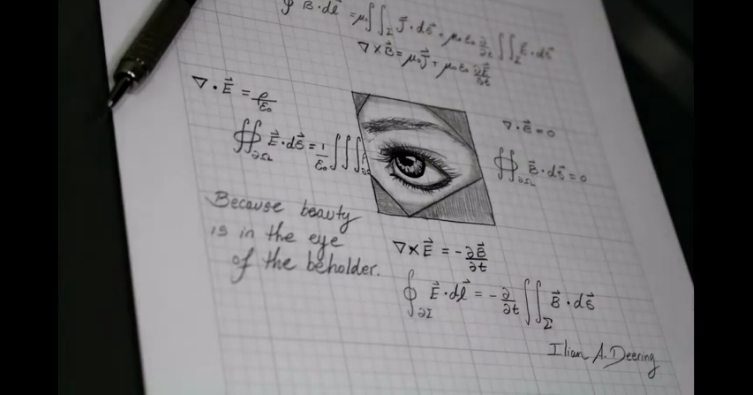 ∮ B⃗·dl⃗ = μ₀∬_Σ J⃗·ds⃗ + μ₀ε₀ ∂/∂t ∬_Σ E⃗·ds⃗
∇×B⃗ = μ₀J⃗ + μ₀ε₀ ∂E⃗/∂t
∇·E⃗ = ρ/ε₀
∯_∂Ω E⃗·ds⃗ = 1/ε₀ ∭
∇·B⃗ = 0
∯_∂Ω B⃗·ds⃗ = 0
Because beauty
is in the eye
of the beholder.
∇×E⃗ = -∂B⃗/∂t
∮_∂Σ E⃗·dl⃗ = -∂/∂t ∬_Σ B⃗·ds⃗
Ilian A. Deering